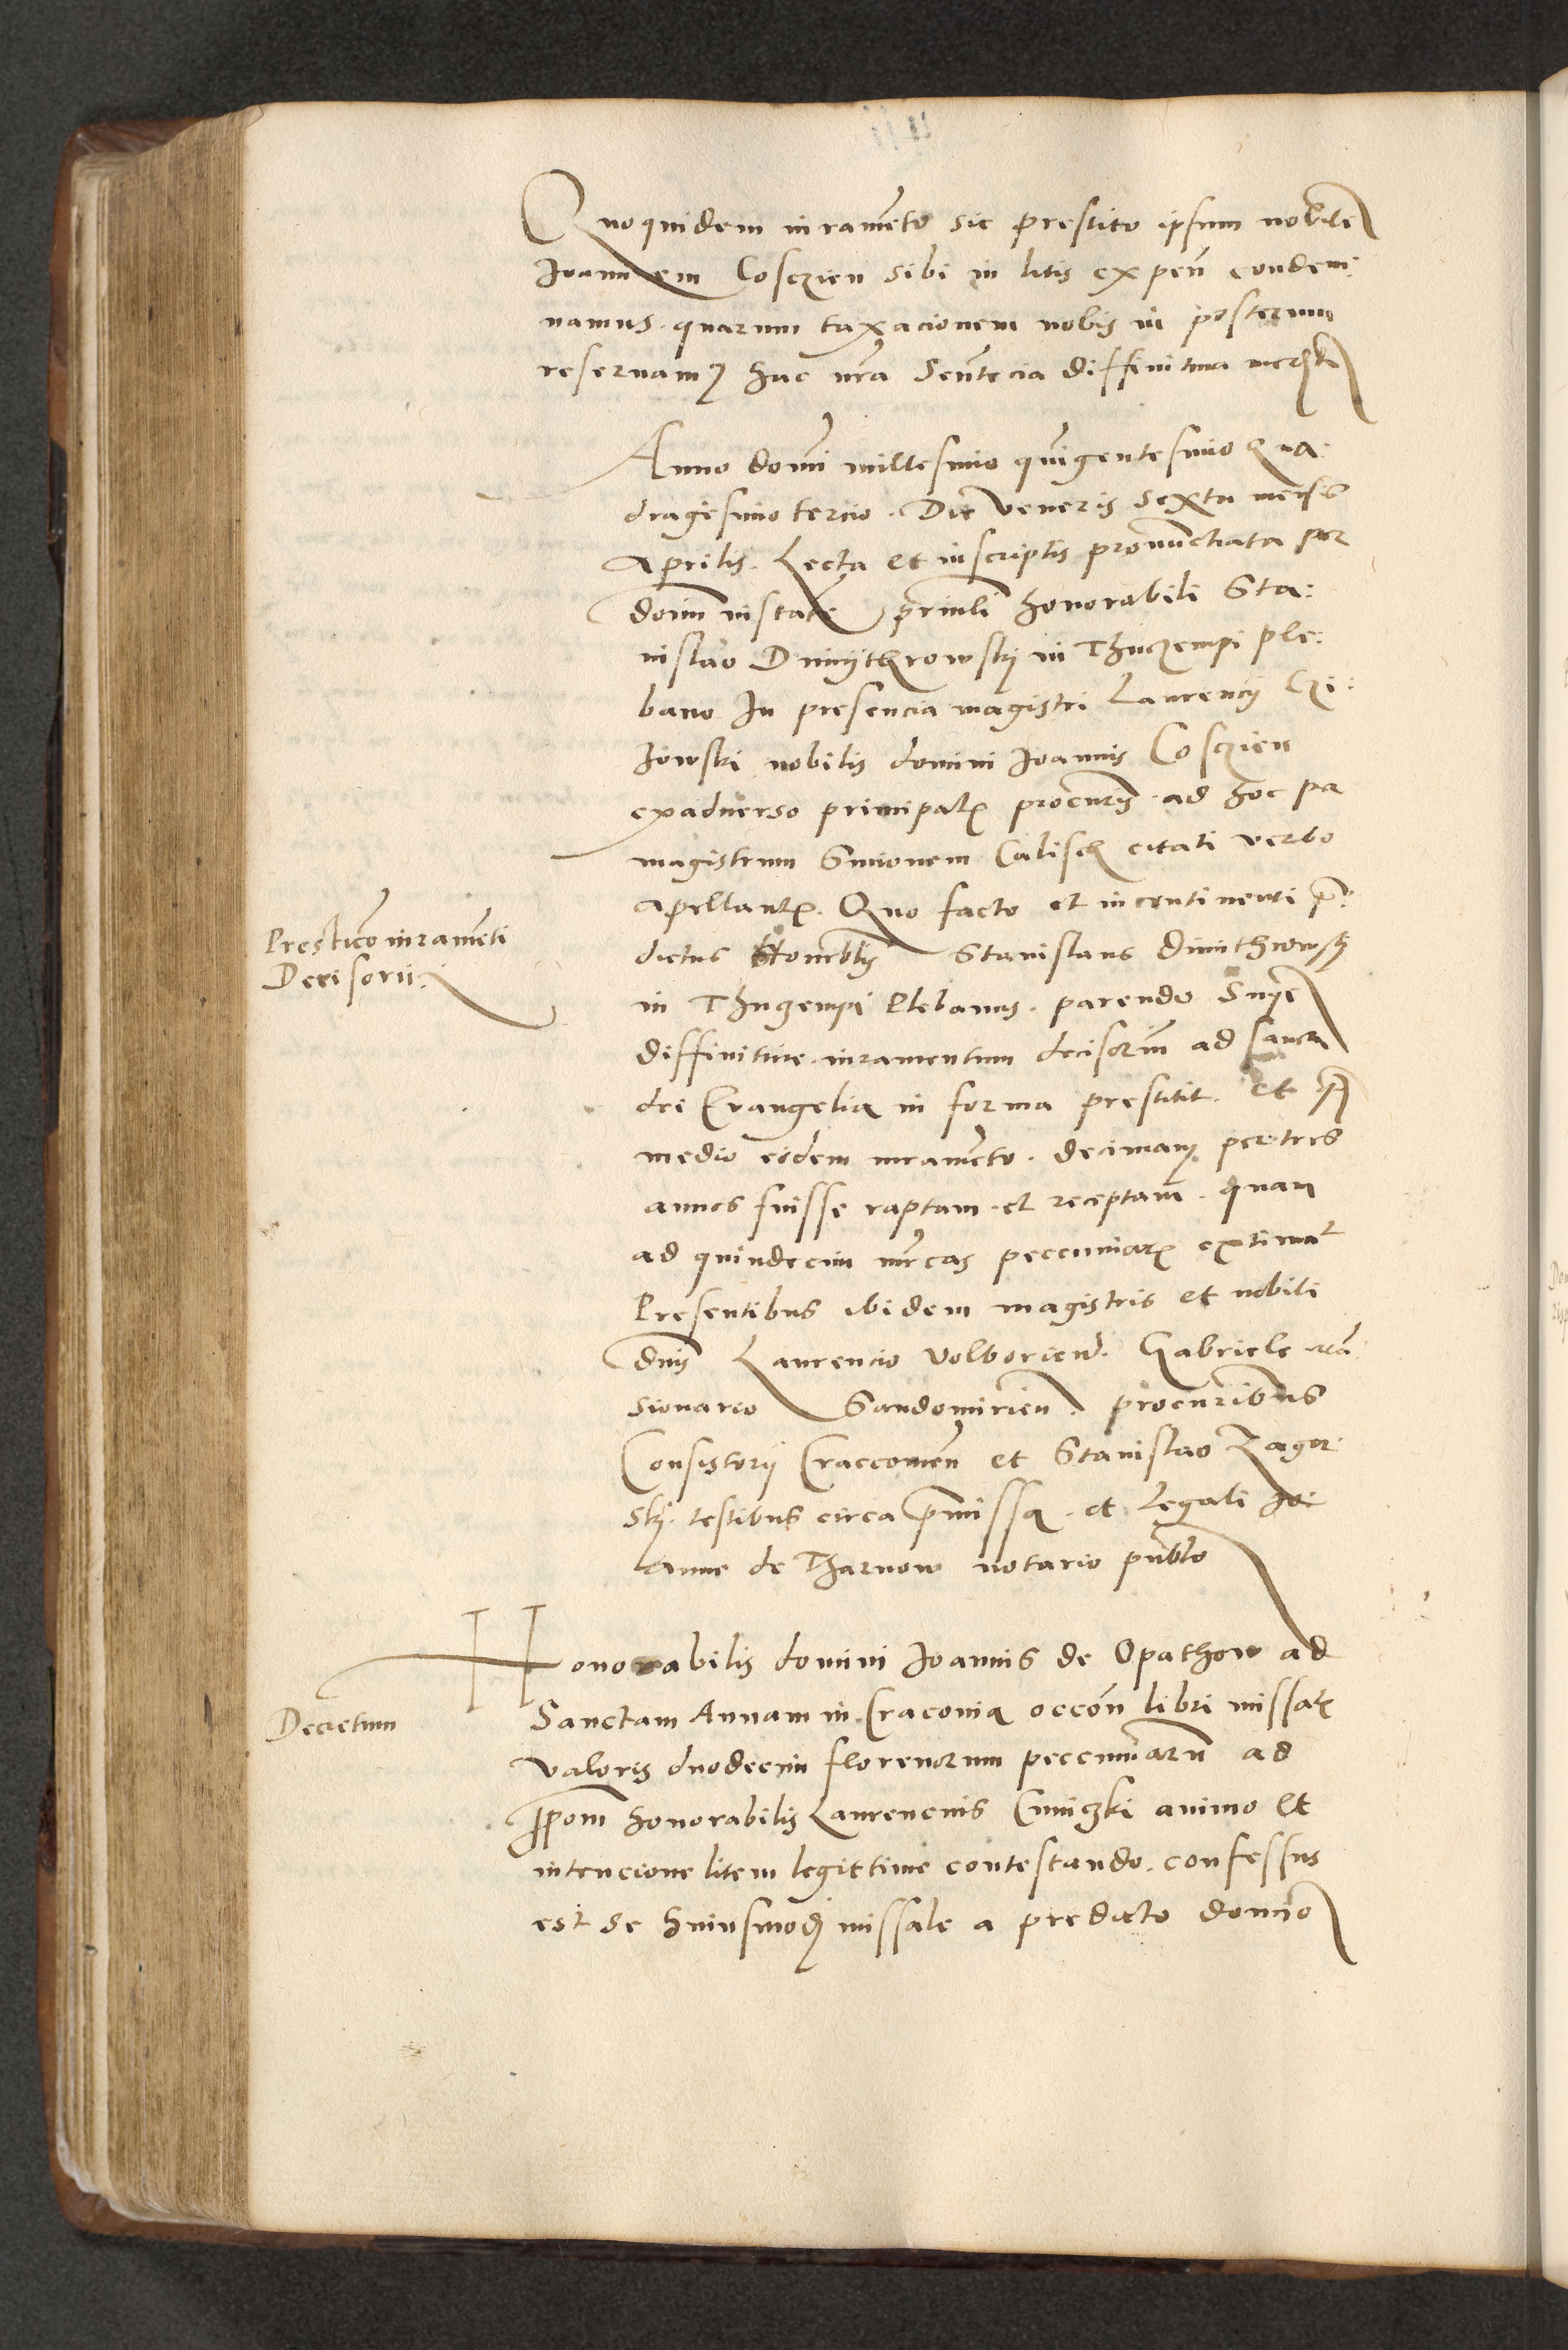 Quoquidem iuramēto sic prestito ipsum nobilē
Joannem Cosczien sibi in litis expeñ condem:
namus. quarum taxacionem nobis in posterum
reseruamꝰ hac nrā Sentēcia diffinitiua
Anno domī millesimo quīgentesimo Qua:
dragesimo tercio. Die Veneris sexta mensis
Aprilis. Lecta et in scriptis pronunctiata per
domī nistatē prinli honorabili Sta:
nislao Dmijthrowskj in Thuczempi ple:
bano In presencia magistri Laurencij Czi:
Jowski nobilis domini Joannis Cosczien
exaduerso principalis procuris. ad hoc per
magistrum Simonem Calisch citati verbo
apellantis. Quo facto et incontinenti p̄:
dictus Honorblis Stanislaus Dmithrowskj
in Thuczempi Plebanus. parendo Sniē
diffinitiue. iuramentum decisoriū ad sancta
dei Euangelia in forma prestitit. et
medio eodem iuramēto. decimam per tres
annos fuisse raptam. et receptam. quam
ad quindecim mrcas peccuniarꝫ extimat
Presentibus ibidem magistris et nobili
dnis Laurencio Volborien. Gabriele mā
sionario Sandomirien. procuribus
Consistorij Craccouieñ et Stanislao Zagor:
skj. testibus circa p̄missa. et Legali Jo:
anne de Tharnow notario publo
Presticō iuramēti
Decisorii:
Honorabilis domini Joannis de Opathow ad
Sanctam Annam in Craconia occōn libri missalꝫ
valoris duodecim florenorum peccuniarū ad
ꝓpōm honorabilis Laurencius Cuniczki animo et
intencione litem legittime contestando. confessus
est se huiusmodj missale a predicto domīo
Decretum